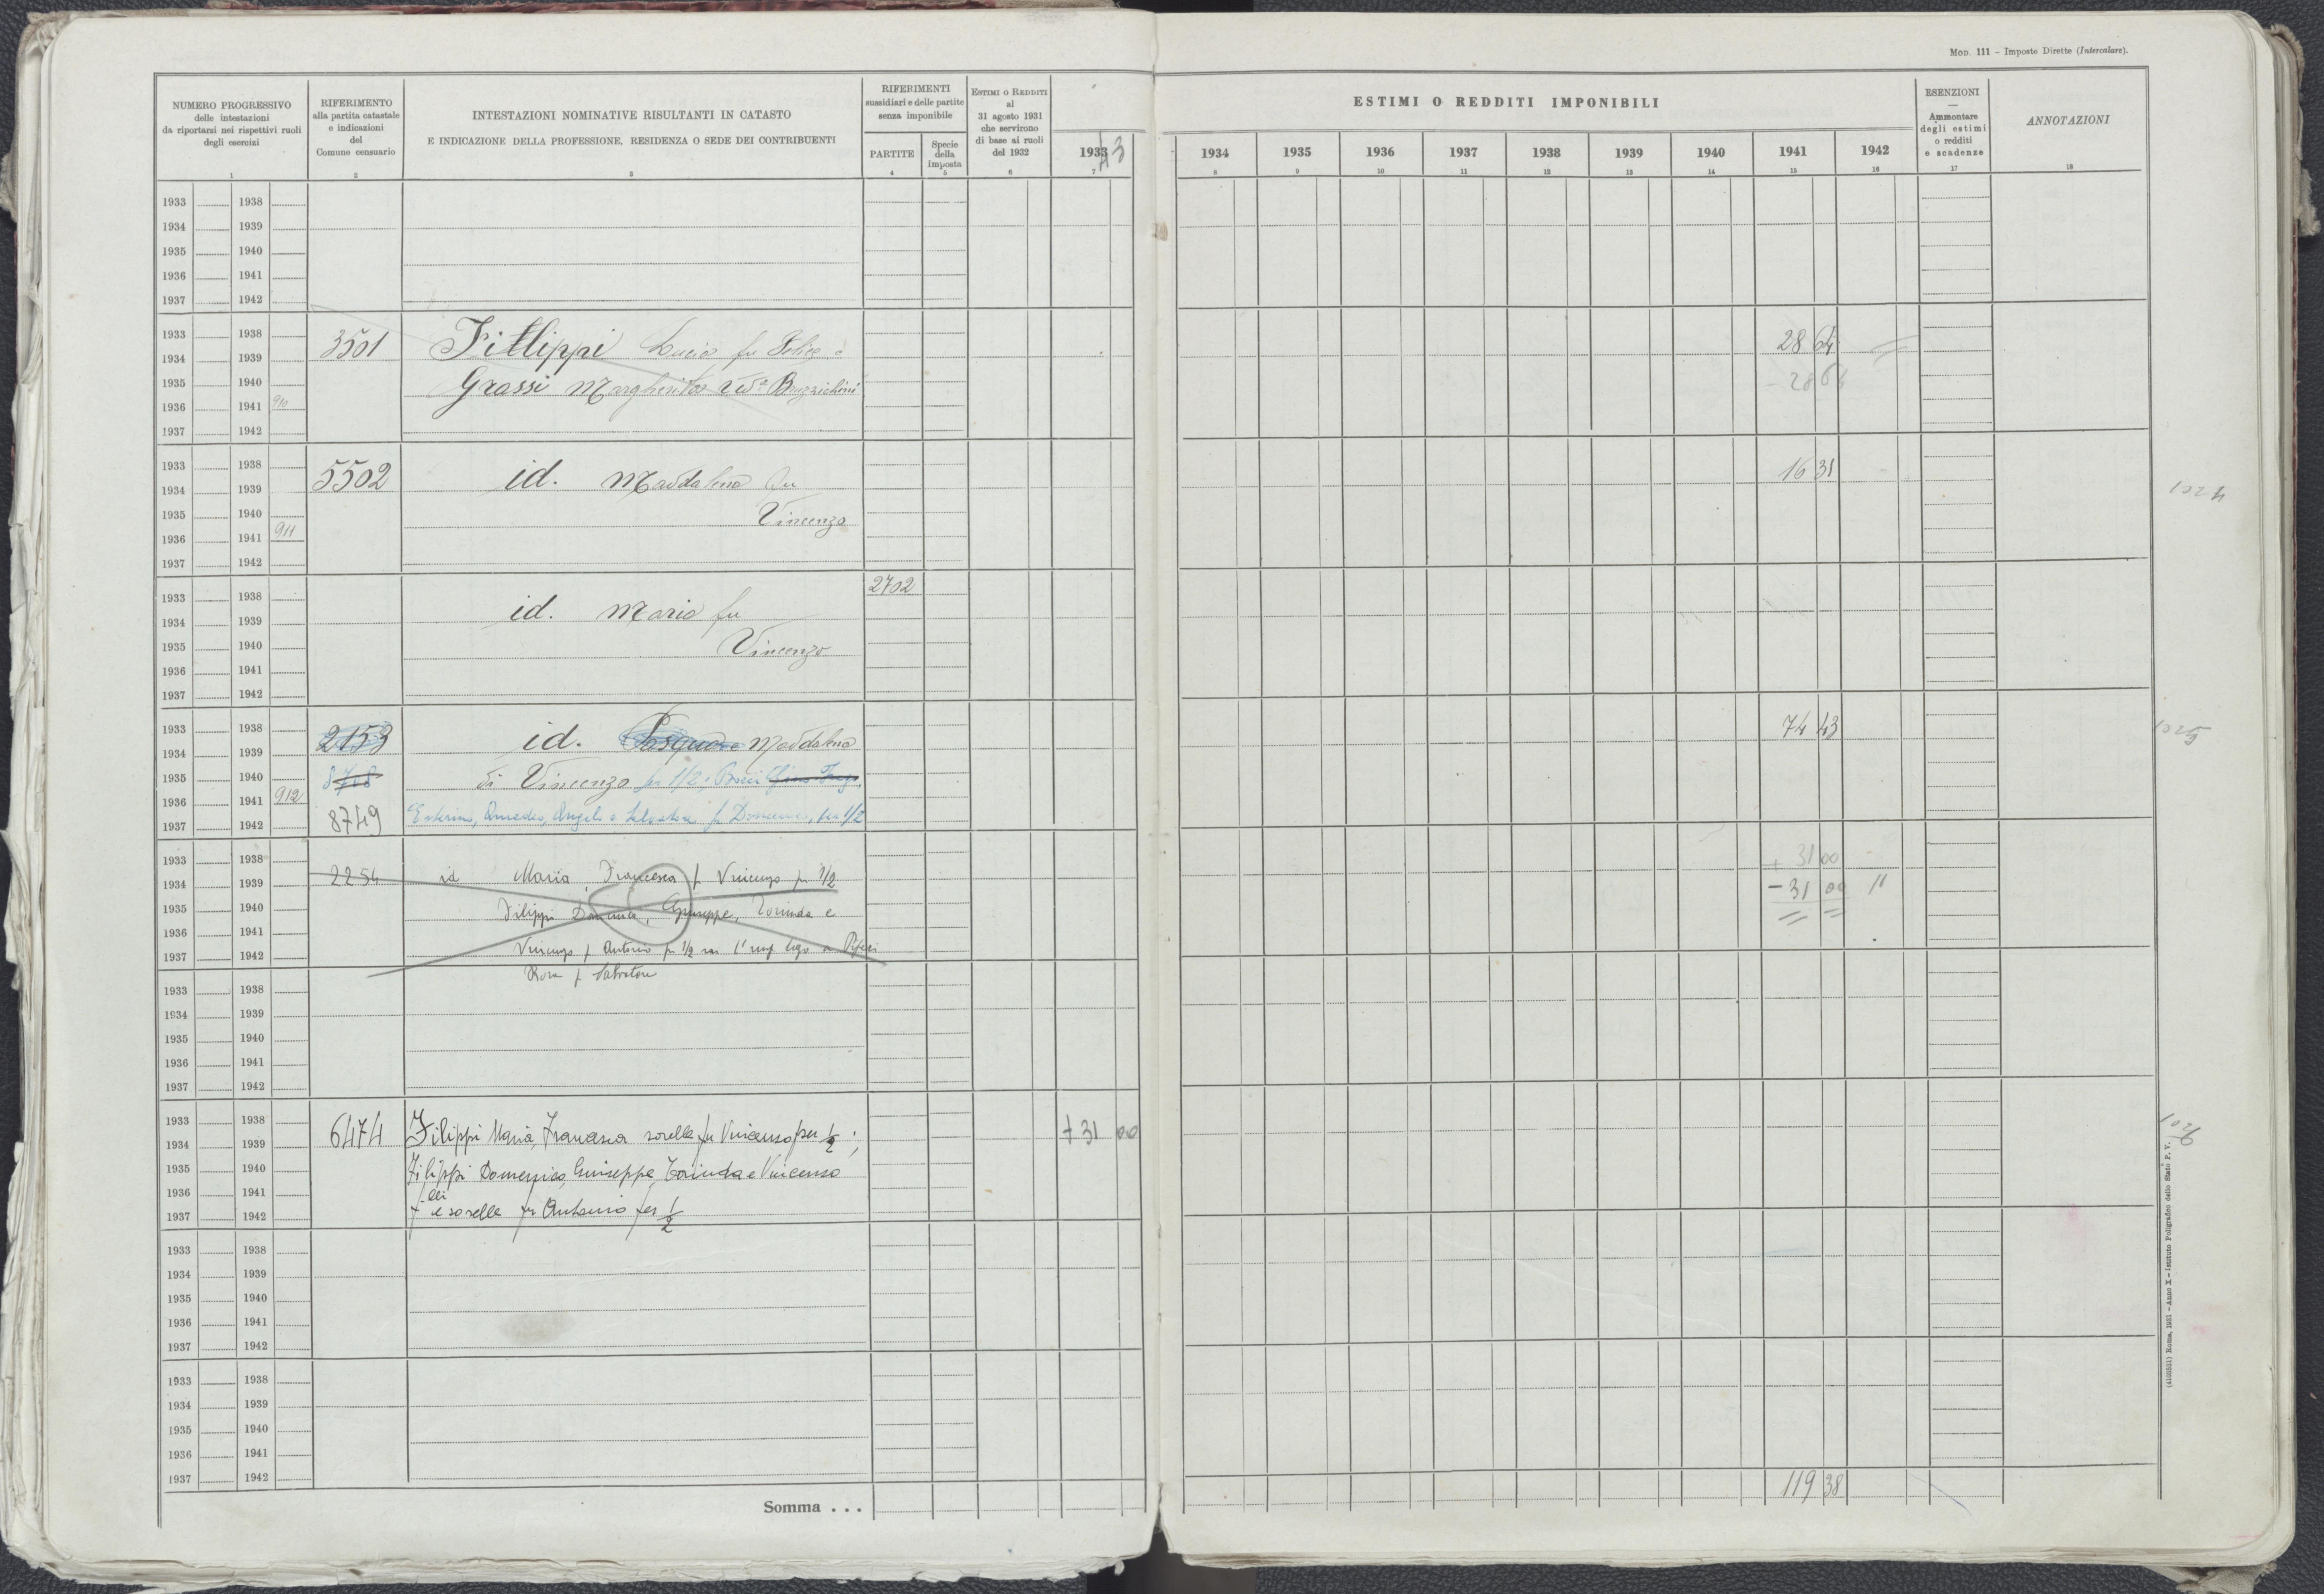 Mod. 111 – Imposte Dirette (Intercalare).
NUMERO PROGRESSIVO
delle intestazioni
da riportarsi nei rispettivi ruoli
degli esercizi
1
RIFERIMENTO
alla partita catastale
e indicazioni
del
Comune censuario
2
INTESTAZIONI NOMINATIVE RISULTANTI IN CATASTO
E INDICAZIONE DELLA PROFESSIONE, RESIDENZA O SEDE DEI CONTRIBUENTI
3
RIFERIMENTI
sussidiari e delle partite
senza imponibile
PARTITE
4
Specie
della
imposta
5
Estimi o Redditi
al
31 agosto 1931
che servirono
di base ai ruoli
del 1932
6
1933 43
7
ESTIMI O REDDITI IMPONIBILI
1934 1935 1936 1937 1938 1939 1940 1941 1942
8 9 10 11 12 13 14 15 16
ESENZIONI
—
Ammontare
degli estimi
o redditi
e scadenze
17
ANNOTAZIONI
18
1933 1938
1934 1939
1935 1940
1936 1941
1937 1942
1933 1938
1934 1939 3501 Filippi Lucia fu Felice e 28 64
1935 1940 Grassi Margherita Ved. Bruzzichini - 28 64
1936 1941 910
1937 1942
1933 1938
1934 1939 5502 id. Maddalena fu 16 31
1935 1940 Vincenzo
1936 1941 911
1937 1942
1933 1938 2702
1934 1939 id. Maria fu
1935 1940 Vincenzo
1936 1941
1937 1942
1933 1938
1934 1939 2153 id. Pasqua Maddalena 74 43
1935 1940 8708 di Vincenzo per 1/2; Bocci
1936 1941 912
1937 1942 8749 Amedeo, Angelo e Salvatore fu Domenico, per 1/2
1933 1938 + 31 00
1934 1939 2254 id Maria, Francesca f Vincenzo per 1/2 - 31 00 "
1935 1940 Filippi Domenica, Giuseppe, Torinda e
1936 1941
1937 1942 Vincenzo f Antonio per 1/2
Rosa f Salvatore
1933 1938
1934 1939
1935 1940
1936 1941
1937 1942
1933 1938
1934 1939 6474 Filippi Maria, Francesca sorelle fu Vincenzo per 1/2; + 31 00
1935 1940 Filippi Domenico, Giuseppe, Torinda e Vincenzo
1936 1941
1937 1942 f.lli e sorelle fu Antonio per 1/2
1933 1938
1934 1939
1935 1940
1936 1941
1937 1942
1933 1938
1934 1939
1935 1940
1936 1941
1937 1942
119 38
Somma . . .
(4103531) Roma, 1931 – Anno X – Istituto Poligrafico dello Stato P. V.